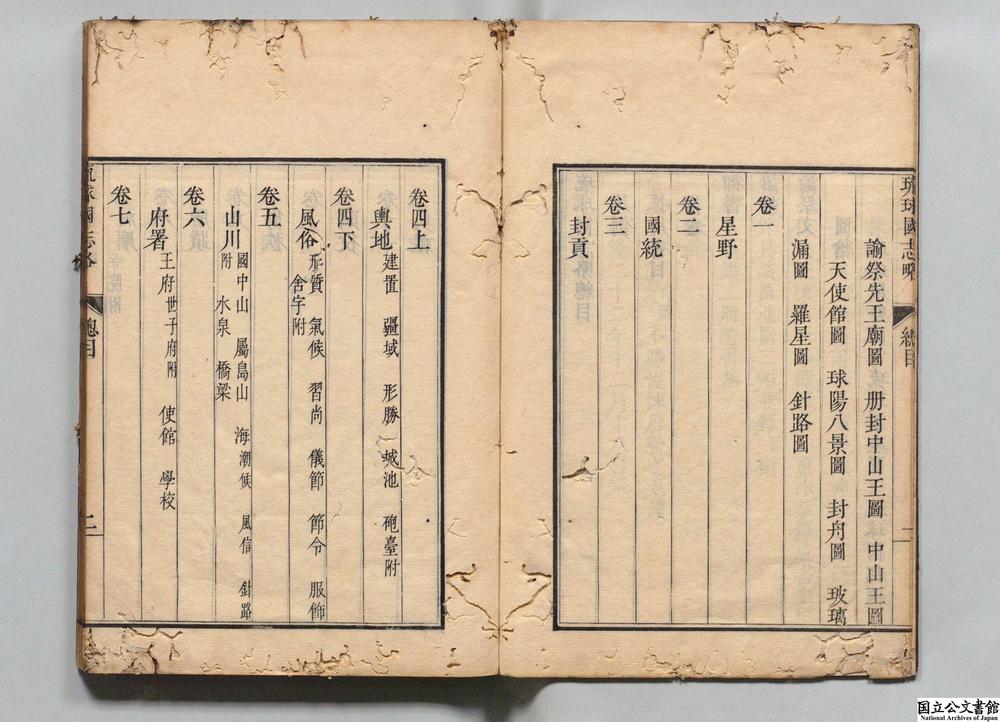 琉球國志略
總目
一
諭祭先王廟圖 册封中山王圖 中山王圖
天使館圖 球陽八景圖 封舟圖 玻璃
漏圖 羅星圖 針路圖
卷一
星野
卷二
國統
卷三
封貢
卷四上
輿地 建置 疆域 形勝 城池 砲臺附
卷四下
風俗 形質 氣候 習尚 儀節 節令 服飾
舍宇附
卷五
山川 國中山 屬島山 海 潮候 風信 針路
附 水泉 橋梁
卷六
府署 王府 世子府附 使館 學校
卷七
琉球國志略
總目
二
国立公文書館
National Archives of Japan